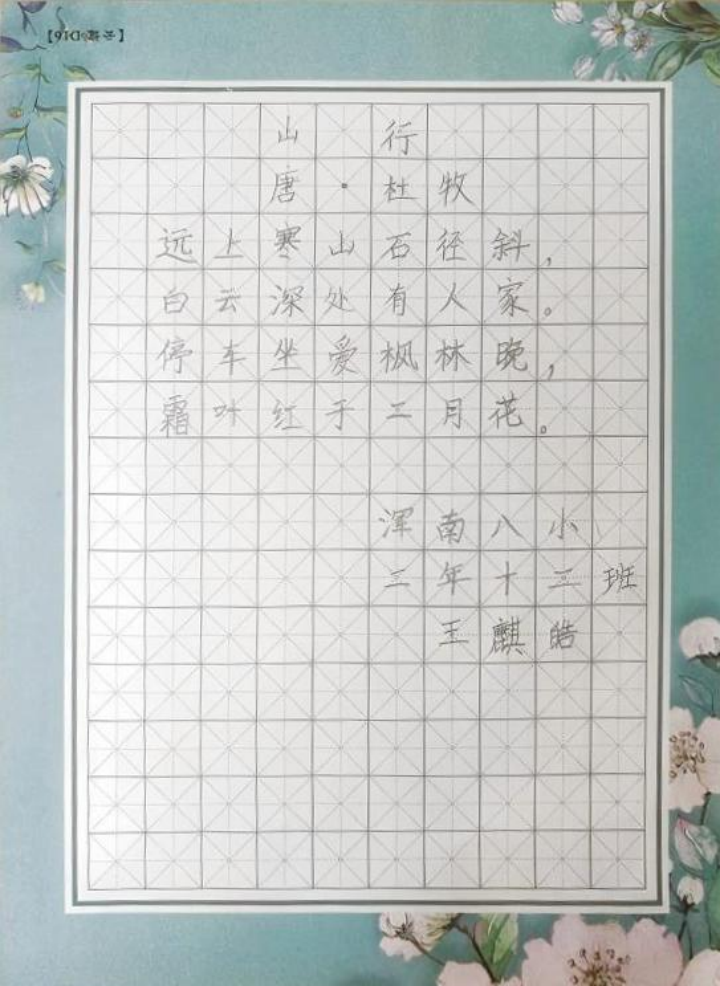 山行
唐·杜牧
远上寒山石径斜，
白云深处有人家。
停车坐爱枫林晚，
霜叶红于二月花。
浑南八小
二年十三班
王麒皓